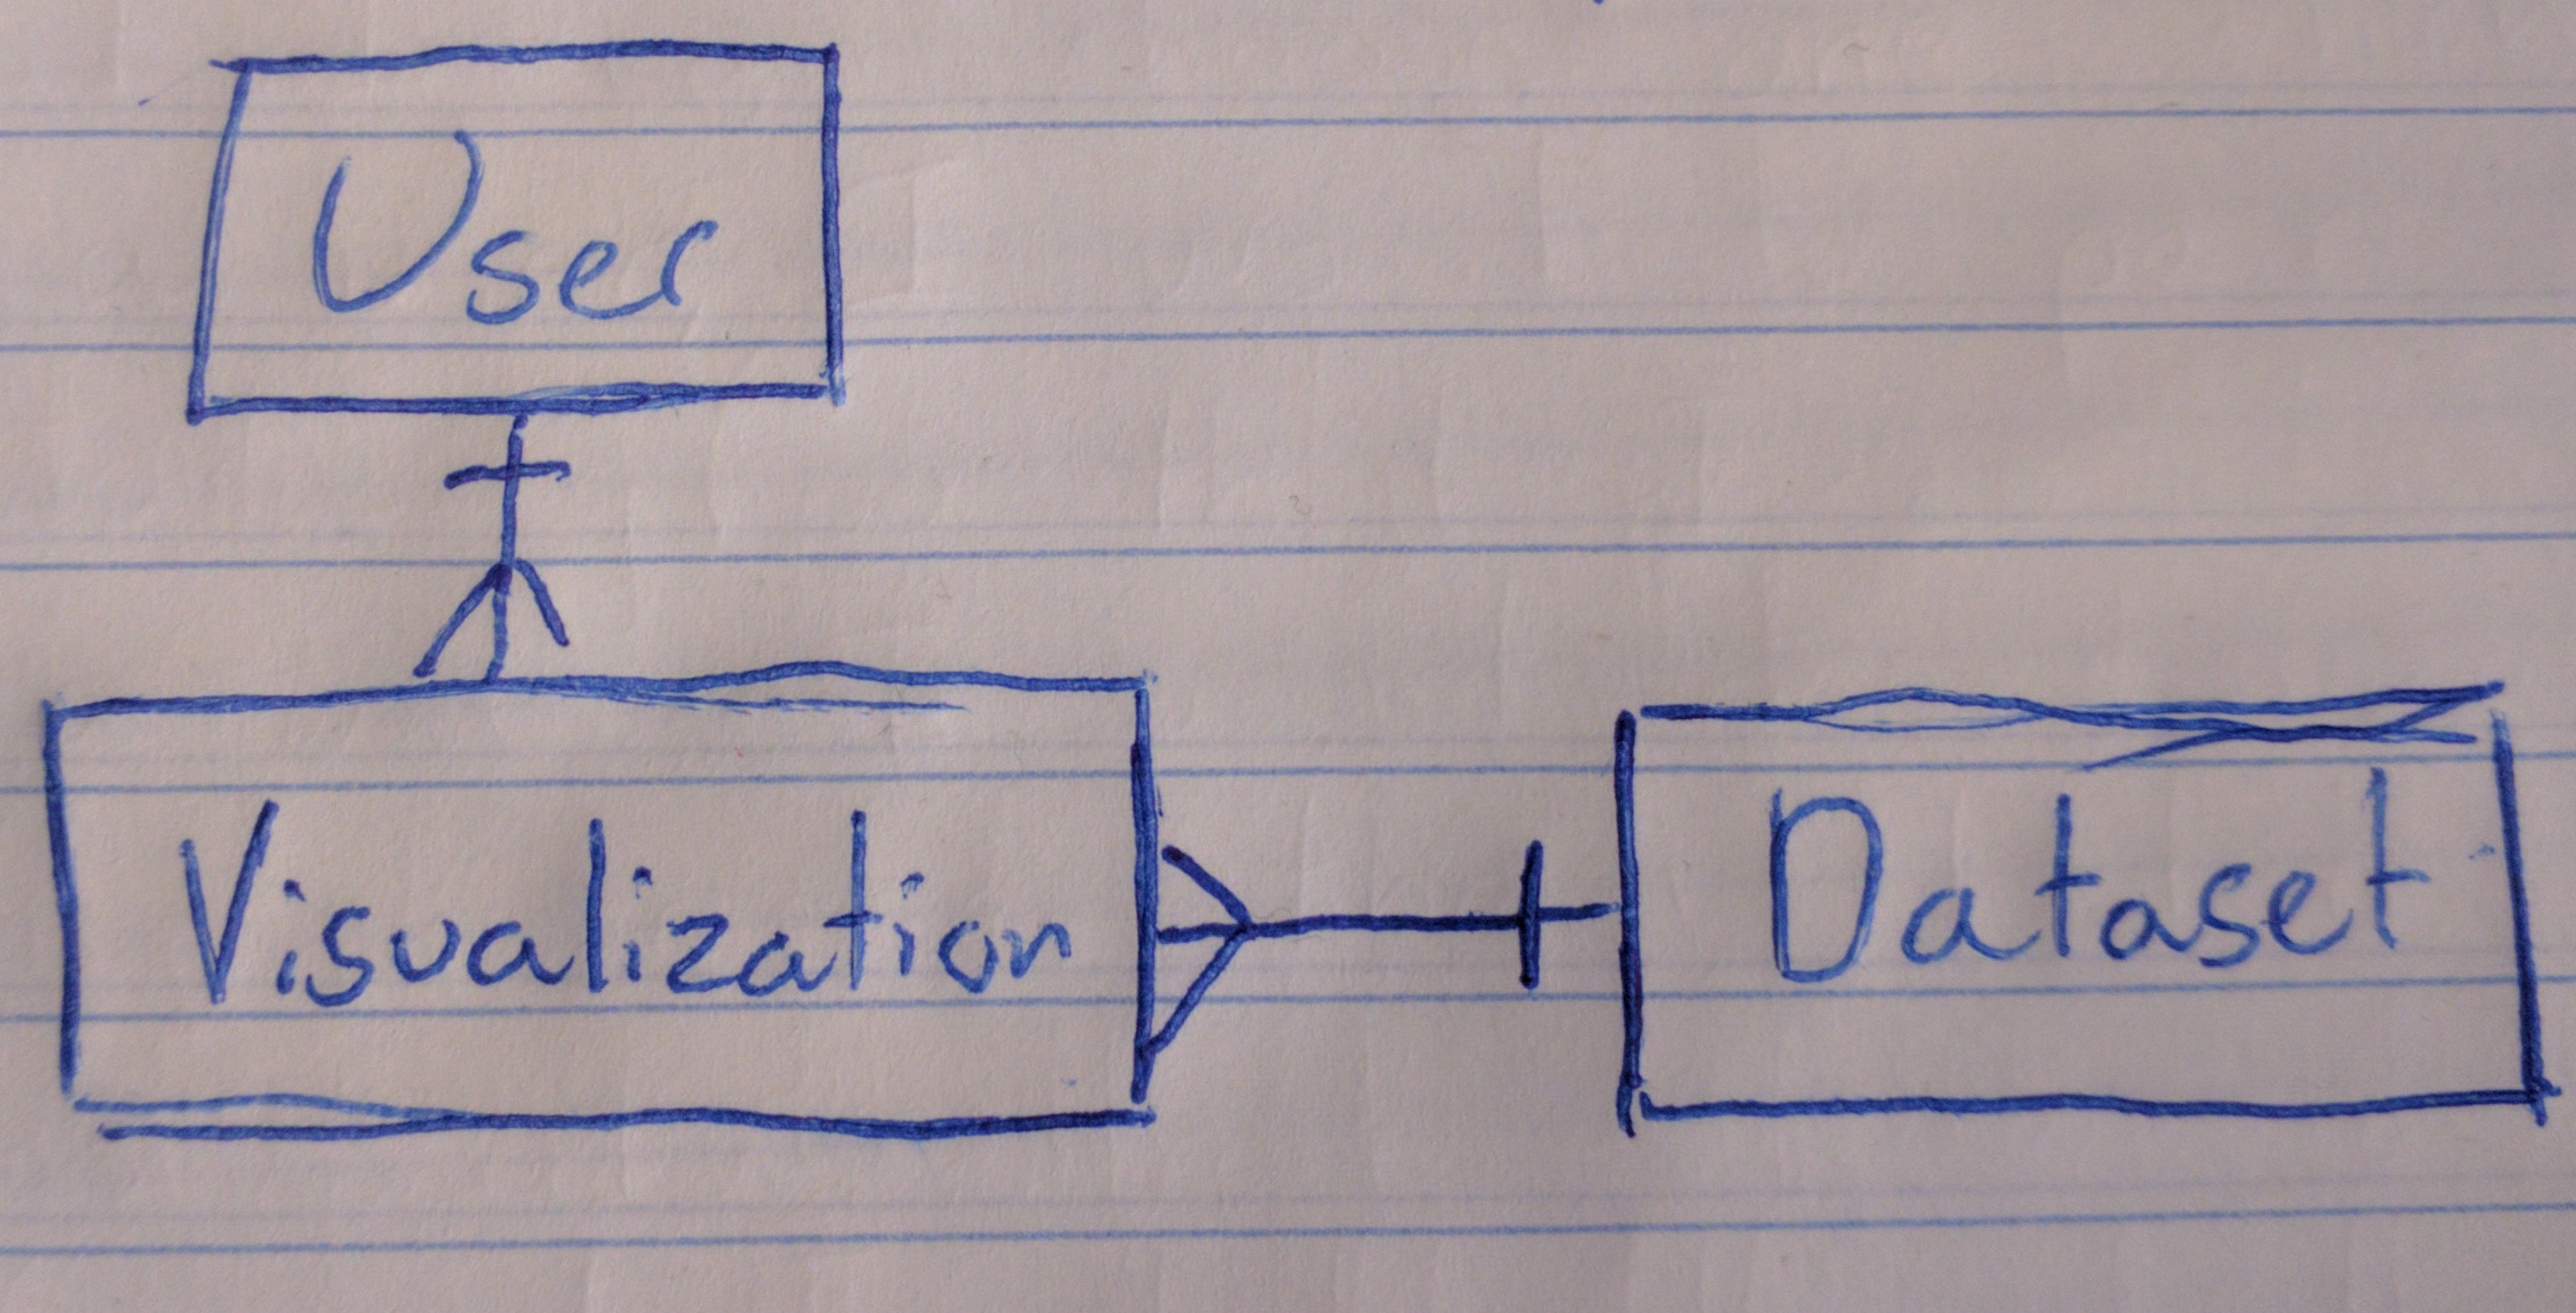 User
Visualization
Dataset